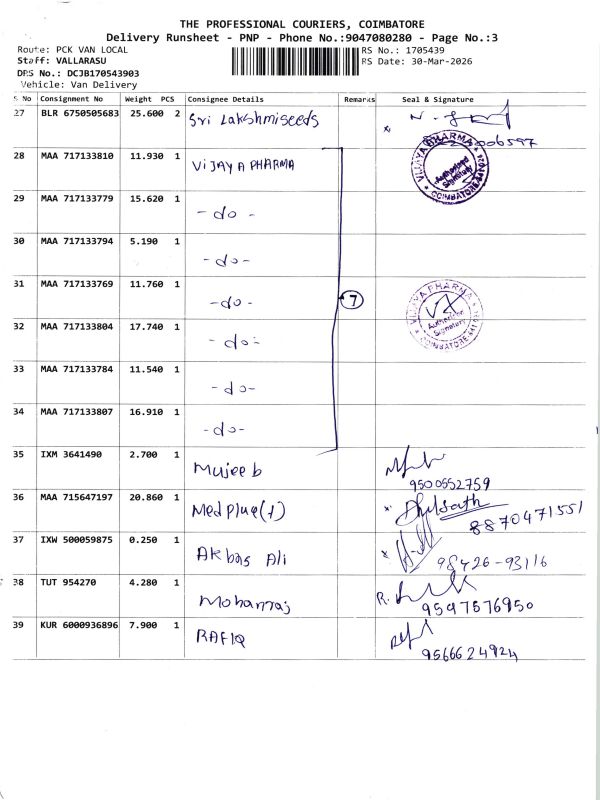 THE PROFESSIONAL COURIERS, COIMBATORE
Delivery Runsheet - PNP - Phone No.:9047080280 - Page No.:3
Route: PCK VAN LOCAL
RS No.: 1705439
Staff: VALLARASU
RS Date: 30-Mar-2026
DRS No.: DCJB170543903
Vehicle: Van Delivery
S No Consignment No Weight PCS Consignee Details Remarks Seal & Signature
27 BLR 6750505683 25.600 2 Sri Lakshmiseeds
28 MAA 717133810 11.930 1 VIJAYA PHARMA
VIJAYA PHARMA Authorised Signatory COIMBATORE
29 MAA 717133779 15.620 1 -do-
30 MAA 717133794 5.190 1 -do-
31 MAA 717133769 11.760 1 -do- 7
VIJAYA PHARMA Authorised Signatory COIMBATORE
32 MAA 717133804 17.740 1 -do-
33 MAA 717133784 11.540 1 -do-
34 MAA 717133807 16.910 1 -do-
35 IXM 3641490 2.700 1 Mujeeb
9500552759
36 MAA 715647197 20.860 1 Medplue(1)
8870471551
37 IXW 500059875 0.250 1 Akbas Ali
98426-93116
38 TUT 954270 4.280 1 Mohanraj
9597576950
39 KUR 6000936896 7.900 1 RAFIQ
9566624924